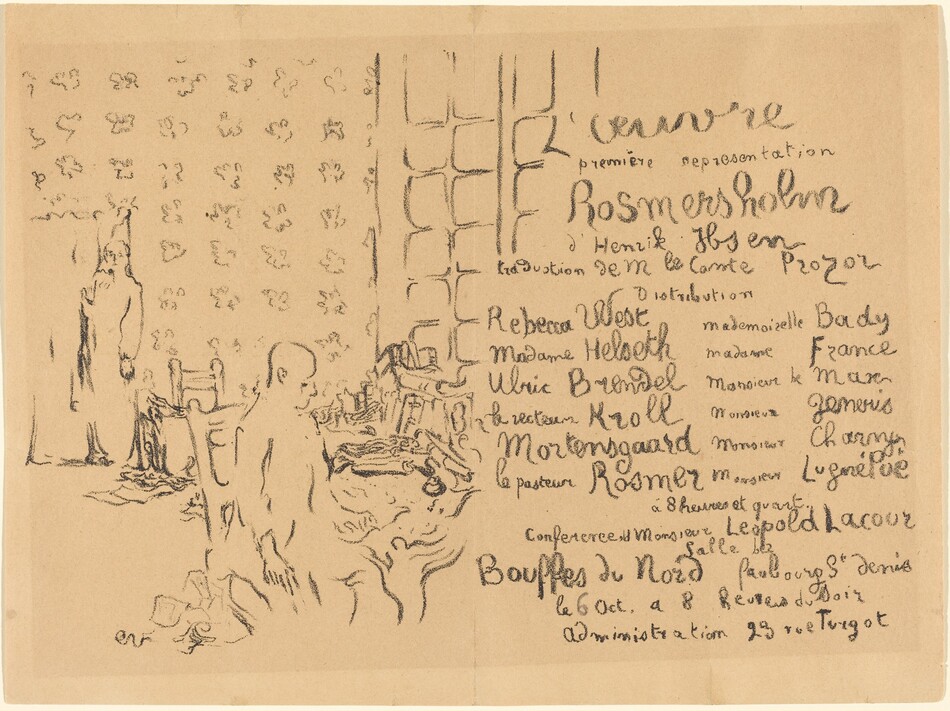 L'œuvre
première representation
Rosmersholm
d'Henrik Ibsen
traduction de M le Comte Prozor
Distribution
Rebecca West mademoiselle Bady
Madame Helseth madame France
Ulric Brendel Monsieur de Max
le recteur Kroll Monsieur
Mortensgaard Monsieur Charny
le pasteur Rosmer Monsieur Lugné Poë
à 8 heures et quart.
Conference d Monsieur Leopold Lacour
Salle des
Bouffes du Nord faubourg St denis
le 6 Oct. a 8 heures du Soir
administration 23 rue Turgot
ev